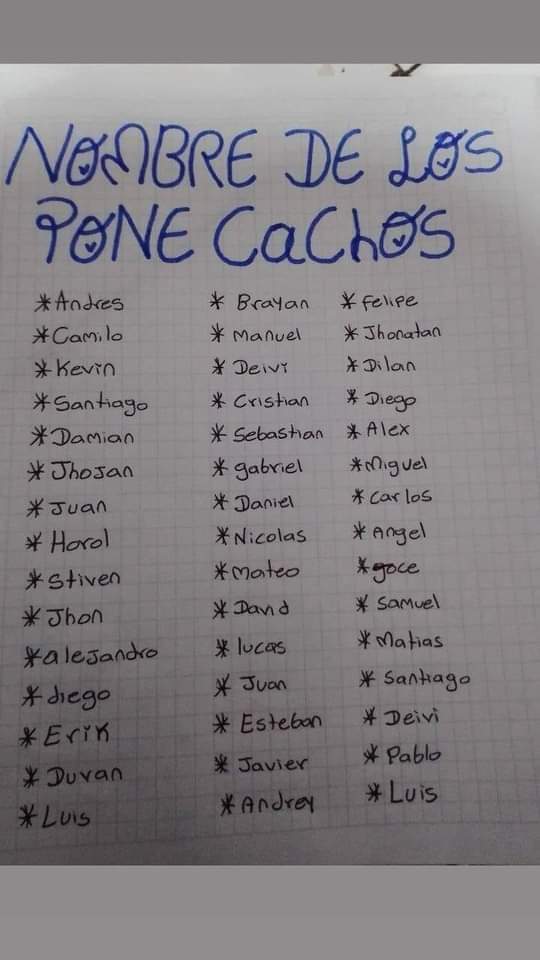 NOMBRE DE LOS
PONE CaChOS
*Andres * Brayan *felipe
*Camilo * Manuel *Jhonatan
*Kevin * Deivi *Dilan
*Santiago * Cristian * Diego
*Damian * Sebastian *Alex
*Jhojan * gabriel *Miguel
*Juan * Daniel *Carlos
* Horol *Nicolas *Angel
*Stiven *Mateo *goce
*Jhon * David * Samuel
*alejandro * lucas *Matias
*diego * Juan * Santiago
*Erik * Esteban * Deivi
* Duvan * Javier * Pablo
*Luis *Andrey * Luis